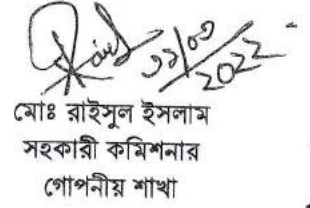 ২২/০৩/২০২২
মোঃ রাইসুল ইসলাম
সহকারী কমিশনার
গোপনীয় শাখা